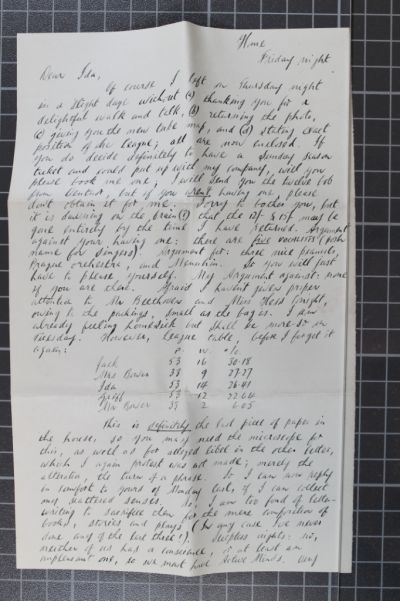 Home
Friday night
Dear Ida,
Of course I left on Thursday night
in a slight daze without (a) thanking you for a
delightful walk and talk, (b) returning the photo,
(c) giving you the new tube map, and (d) stating exact
position of the league; all are now enclosed. If
you do decide definitely to have a Sunday season
ticket and could put up with my company, will you
please book me one, I will send you the twelve bob
from London, but if you aren't having one, please
don't obtain it for me. Sorry to bother you, but
it is dawning on the brain (?) that the 12/- & 15/- may be
gone entirely by the time I have returned. Argument
against your having me: there are five vocalists (posh
name for singers). Argument for: three nice pianists,
Prague orchestra, and Menuhin. So you will just
have to please yourself. My Argument against: none
if you are there. Afraid I haven't given proper
attention to Mr Beethoven and Miss Hess tonight,
owing to the packings, small as the bag is. I am
already feeling homesick but shall be more so on
Tuesday. However, league table, before I forget it
again:
P. W. %
Jack 53 16 30·18
Mrs Bower 33 9 27·27
Ida 53 14 26·41
53 12 22·64
Mr Bower 33 2 6·05
This is definitely the last piece of paper in
the house, so you may need the microscope for
this, as well as for alleged label in the other letter,
which I again protest was not made; merely the
alteration, the turn of a phrase. So I can now reply
in comfort to yours of Monday last, if I can collect
my scattered senses. No, I am too fond of letter-
writing to sacrifice them for the mere composition of
books, stories and plays (in any case I've never
done any of the last three!). Sleepless nights: no,
neither of us has a conscience, or at least an
unpleasant one, so we must have Active Minds. Any